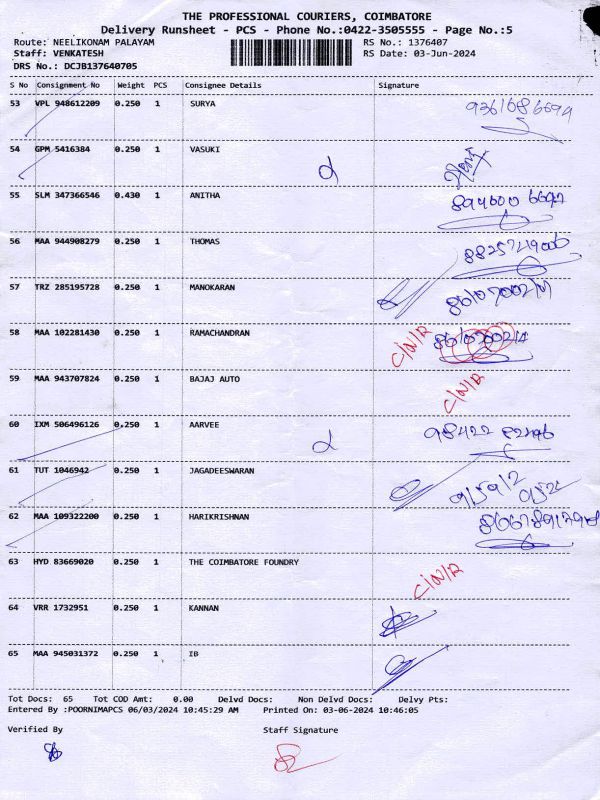 THE PROFESSIONAL COURIERS, COIMBATORE
Delivery Runsheet - PCS - Phone No.:0422-3505555 - Page No.:5
Route: NEELIKONAM PALAYAM RS No.: 1376407
Staff: VENKATESH RS Date: 03-Jun-2024
DRS No.: DCJB137640705
S No Consignment No Weight PCS Consignee Details Signature
53 VPL 948612209 0.250 1 SURYA
54 GPM 5416384 0.250 1 VASUKI
55 SLM 347366546 0.430 1 ANITHA
56 MAA 944908279 0.250 1 THOMAS
57 TRZ 285195728 0.250 1 MANOKARAN
58 MAA 102281430 0.250 1 RAMACHANDRAN C/N/R
59 MAA 943707824 0.250 1 BAJAJ AUTO C/N/R
60 IXM 506496126 0.250 1 AARVEE
61 TUT 1046942 0.250 1 JAGADEESWARAN
62 MAA 109322200 0.250 1 HARIKRISHNAN
63 HYD 83669020 0.250 1 THE COIMBATORE FOUNDRY C/N/R
64 VRR 1732951 0.250 1 KANNAN
65 MAA 945031372 0.250 1 IB
Tot Docs: 65 Tot COD Amt: 0.00 Delvd Docs: Non Delvd Docs: Delvy Pts:
Entered By :POORNIMAPCS 06/03/2024 10:45:29 AM Printed On: 03-06-2024 10:46:05
Verified By Staff Signature